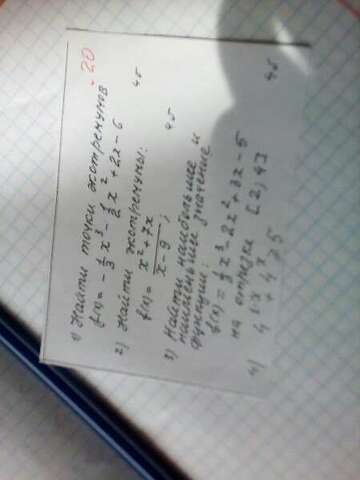 20
1) Найти точки экстремумов
f(x) = -1/3 x³ - 1/2 x² + 2x - 6
4б
2) Найти экстремумы:
f(x) = x² + 7x / x - 9 ;
4б
3) Найти наибольшее и
наименьшее значение
функции:
f(x) = 1/3 x³ - 2x² + 3x - 5
на отрезке [2; 4]
4) 4¹⁻ˣ + 4ˣ ≥ 5
4б